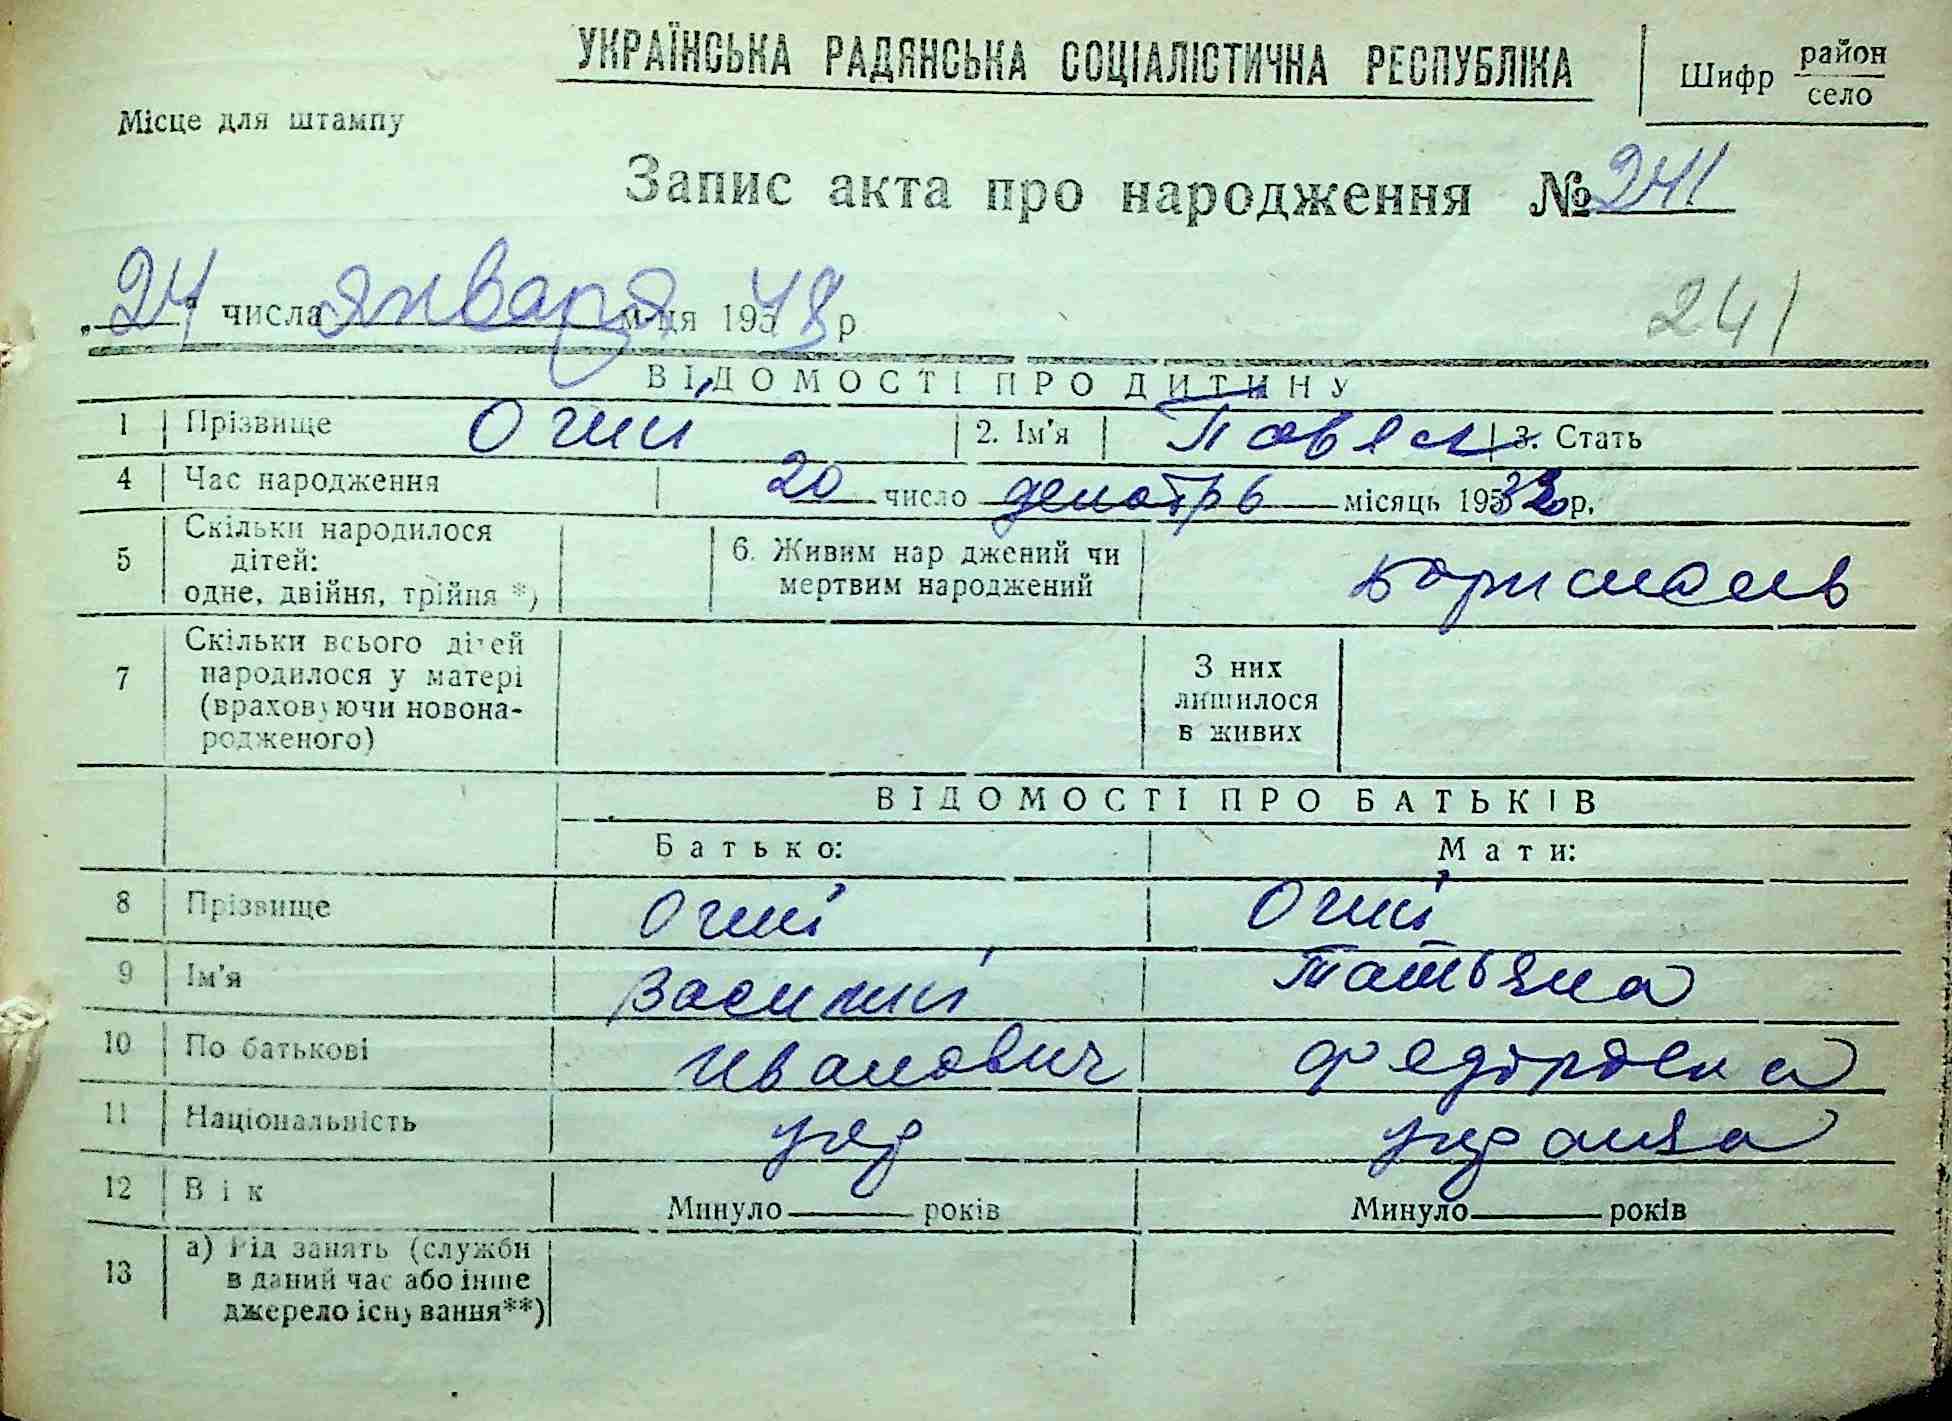 УКРАЇНСЬКА РАДЯНСЬКА СОЦІАЛІСТИЧНА РЕСПУБЛІКА
Шифр район
село
Місце для штампу
Запис акта про народження № 241
„24" числа января м-ця 195 73 р
241
ВІДОМОСТІ ПРО ДИТИНУ
1 Прізвище Огий 2. Ім'я Павел 3. Стать
4 Час народження 20 число декабрь місяць 195 32 р.
5 Скільки народилося
дітей:
одне, двійня, трійня *)
6. Живим нар джений чи
мертвим народжений
Борисполь
7 Скільки всього дітей
народилося у матері
(враховуючи новона-
родженого)
З них
лишилося
в живих
ВІДОМОСТІ ПРО БАТЬКІВ
Батько: Мати:
8 Прізвище Огий Огий
9 Ім'я Василий Татьяна
10 По батькові Иванович Федоровна
11 Національність укр украинка
12 Вік Минуло років Минуло років
13 а) Рід занять (служби
в даний час або інше
джерело існування**)